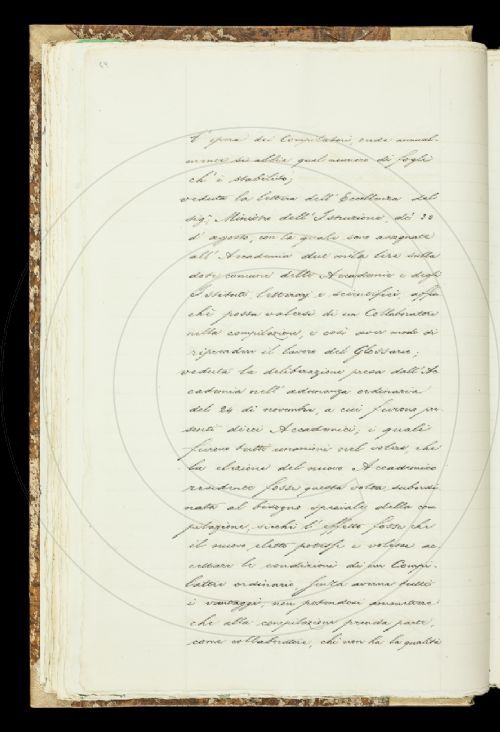 l'opera dei Compilatori, onde annual-
mente si abbia quel numero di fogli
ch'è stabilito;
veduta la lettera dell'Eccellenza del
sig.r Ministro dell'Istruzione, de' 30
d'agosto, con la quale sono assegnate
all'Accademia due mila lire sulla
dote comune delle Accademie e degli
Istituti letterarj e scientifici, affin-
chè possa valersi di un Collaboratore
nella compilazione, e così aver modo di
riprendere il lavoro del Glossario;
veduta la deliberazione presa dall'Ac-
cademia nell'adunanza ordinaria
del 24 di novembre, a cui furono pre-
senti dieci Accademici; i quali
furono tutti unanimi nel volere, che
la elezione del nuovo Accademico
residente fosse questa volta subordi-
nata al bisogno speciale della com-
pilazione, sicchè l'effetto fosse che
il nuovo eletto potesse e volesse ac-
cettare le condizioni di un Compi-
latore ordinario, senza averne tutti
i vantaggi, non potendosi ammettere
che alla compilazione prenda parte,
come collaboratore, chi non ha la qualità